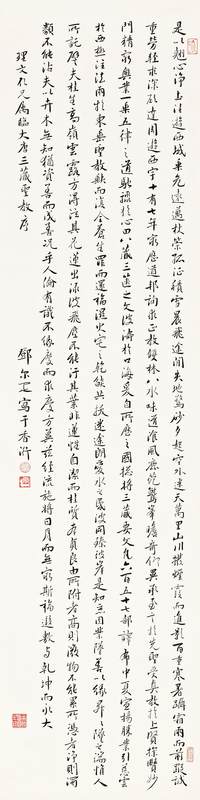 是以翹心淨土法遊西域乘危遠邁杖策孤征積雪晨飛途間失地驚砂夕起空外迷天萬里山川撥煙霞而進影百重寒暑躡霜雨而前蹤誠
重勞輕求深願達周遊西宇十有七年窮歷道邦詢求正教雙林八水味道飡風鹿苑鷲峯瞻奇仰異承至言於先聖受真教於上賢探賾妙
門精窮奧業一乘五律之道馳驟於心田八藏三篋之文波濤於口海爰自所歷之國總將三藏要文凡六百五十七部譯布中夏宣揚勝業引慈雲
於西極注法雨於東垂聖教缺而復全蒼生罪而還福濕火宅之乾燄共拔迷途朗愛水之昏波同臻彼岸是知惡因業墜善以緣昇昇墜之端惟人
所託譬夫桂生高嶺雲露方得泫其花蓮出淥波飛塵不能汙其葉非蓮性自潔而桂質本貞良由所附者高則微物不能累所憑者淨則濁
類不能沾夫以卉木無知猶資善而成善況乎人倫有識不緣慶而求慶方冀茲經流施將日月而無窮斯福遐敷與乾坤而永大
理文仁兄屬臨大唐三藏聖教序
鄧尔疋寫于香